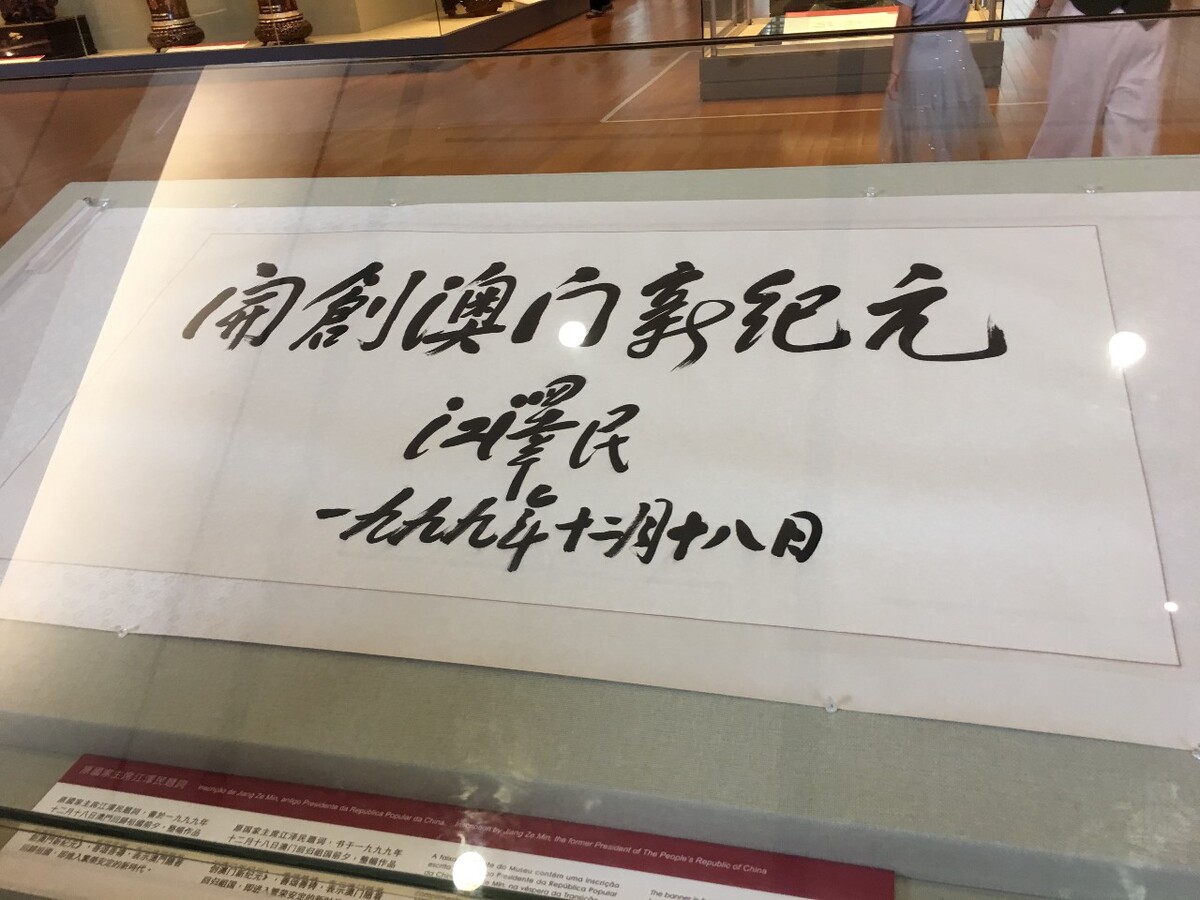 開創澳门新纪元
江澤民
一九九九年十二月十八日
原國家主席江澤民題詞 Inscrição de Jiang Ze Min, antigo Presidente da República Popular da China. Inscription by Jiang Ze Min, the former President of The People's Republic of China
原國家主席江澤民題詞，書於一九九九年
十二月十八日澳門回歸祖國前夕，整幅作品
原国家主席江泽民题词，书于一九九九年
十二月十八日澳门回归祖国前夕，整幅作品
de Museu contém uma inscrição
Presidente da República Popular
Min, na véspera da transição
The banner is